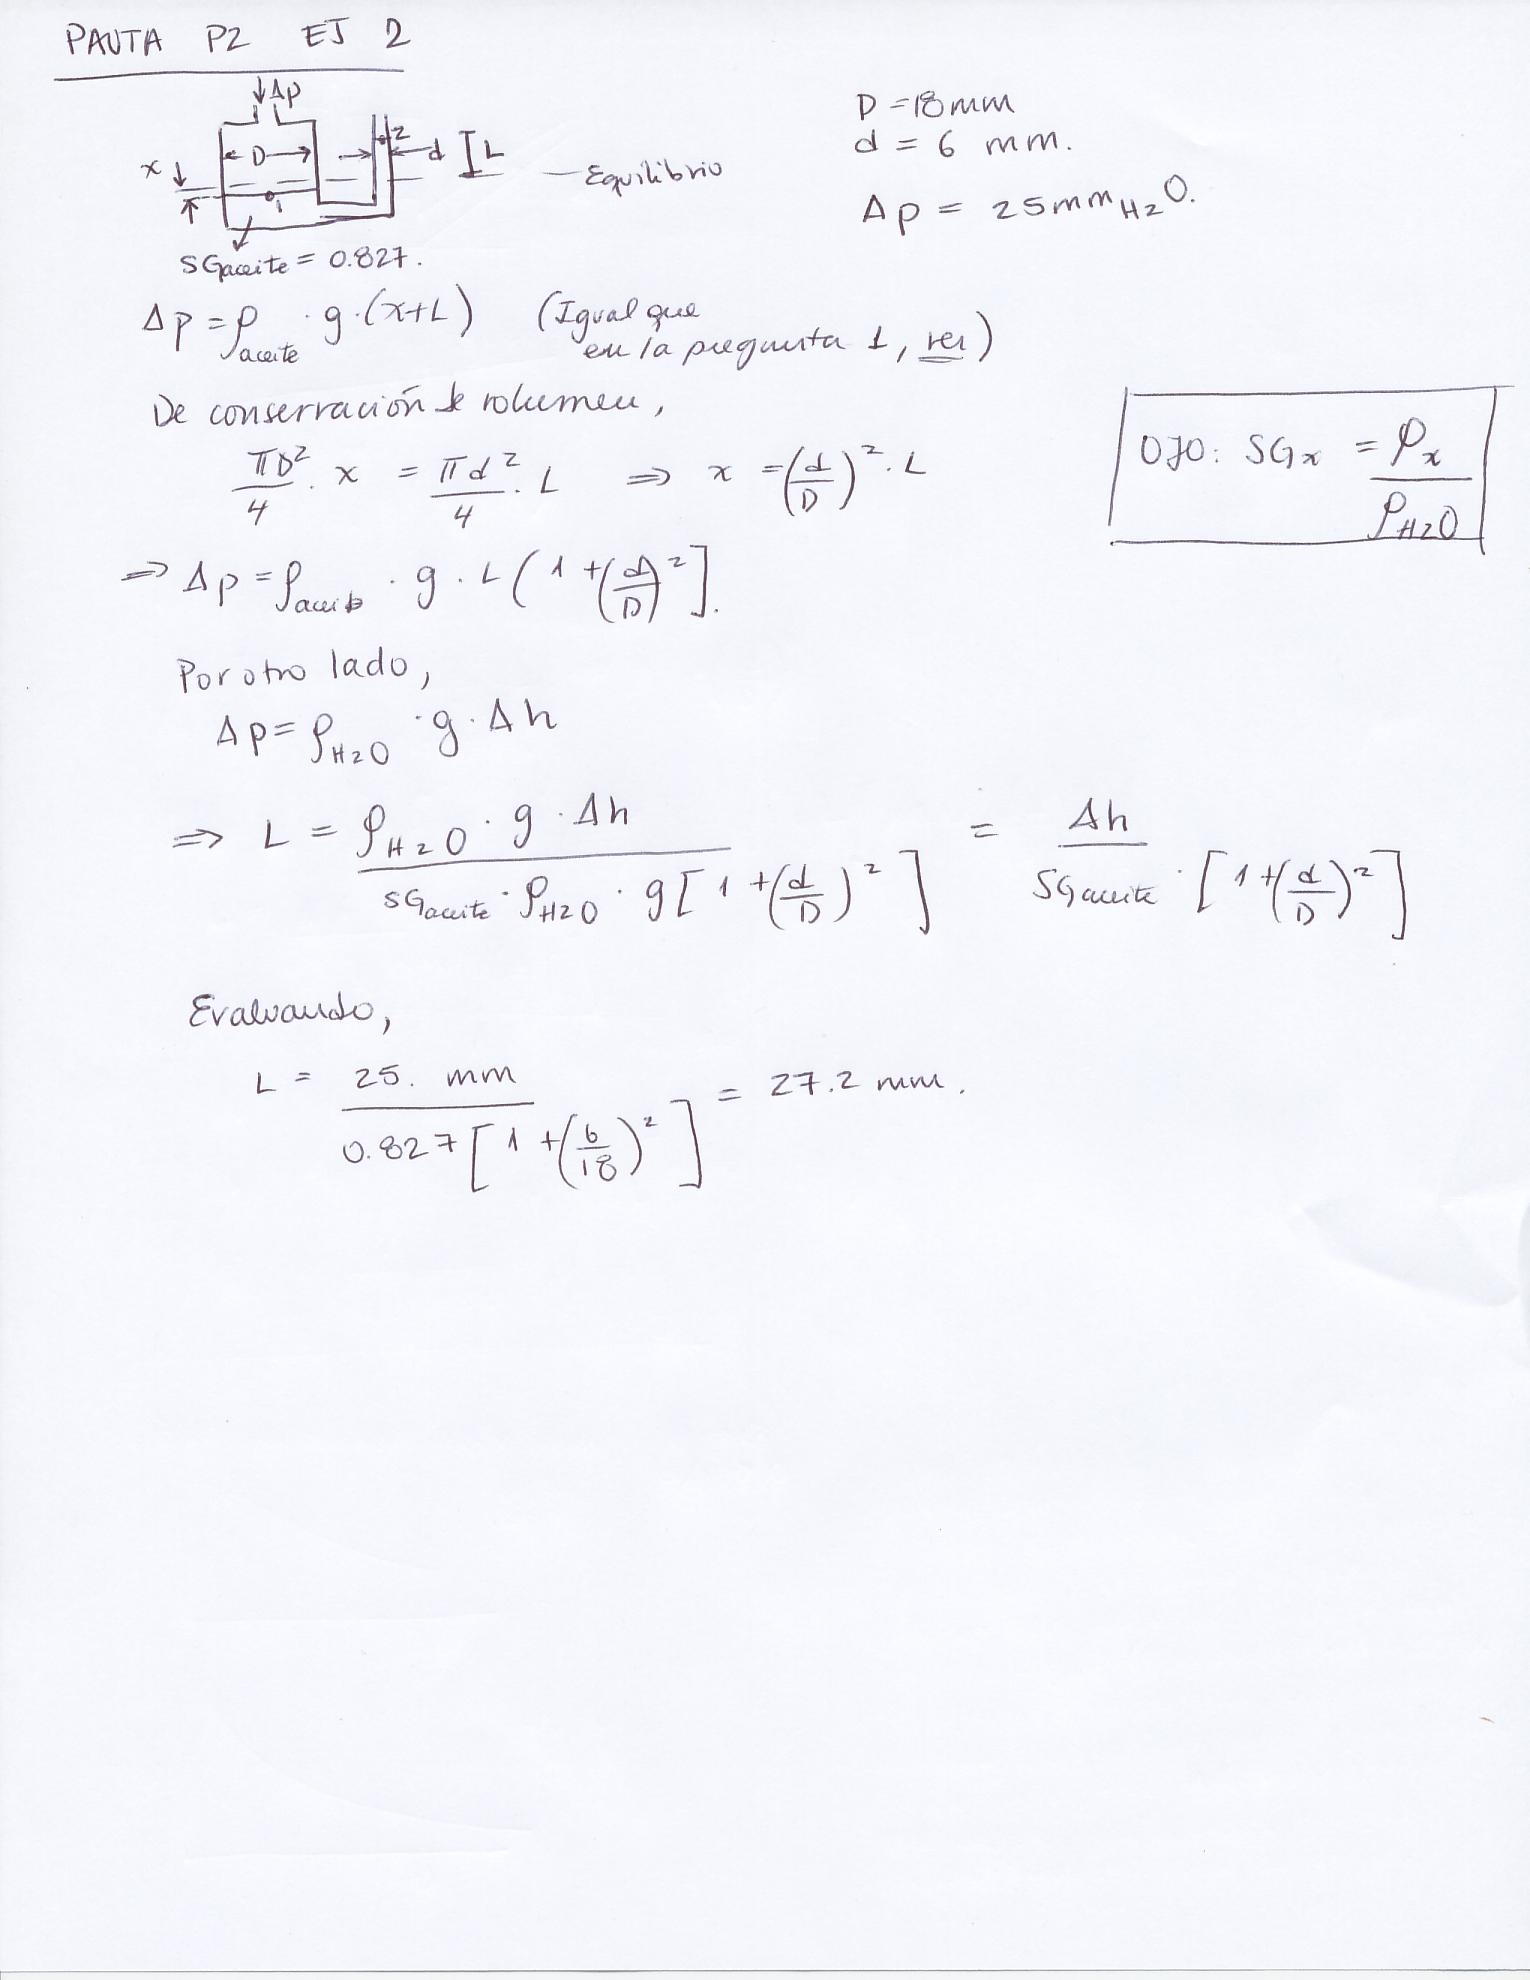 PAUTA P2 EJ 2
↓Δp
D = 18 mm
d = 6 mm.
Δp = 25 mm H2O.
x D 2 d L
1
— Equilibrio
SGaceite = 0.827.
Δp = ρaceite · g · (x+L) (Igual que
en la pregunta 1, ver)
De conservación de volumen,
πD²/4 · x = πd²/4 · L ⇒ x = (d/D)² · L
OJO: SGx = ρx/ρH2O
⇒ Δp = ρaceite · g · L ( 1 + (d/D)² ].
Por otro lado,
Δp = ρH2O · g · Δh
⇒ L = ρH2O · g · Δh / SGaceite · ρH2O · g [ 1 + (d/D)² ] = Δh / SGaceite · [ 1 + (d/D)² ]
Evaluando,
L = 25. mm / 0.827 [ 1 + (6/18)² ] = 27.2 mm.